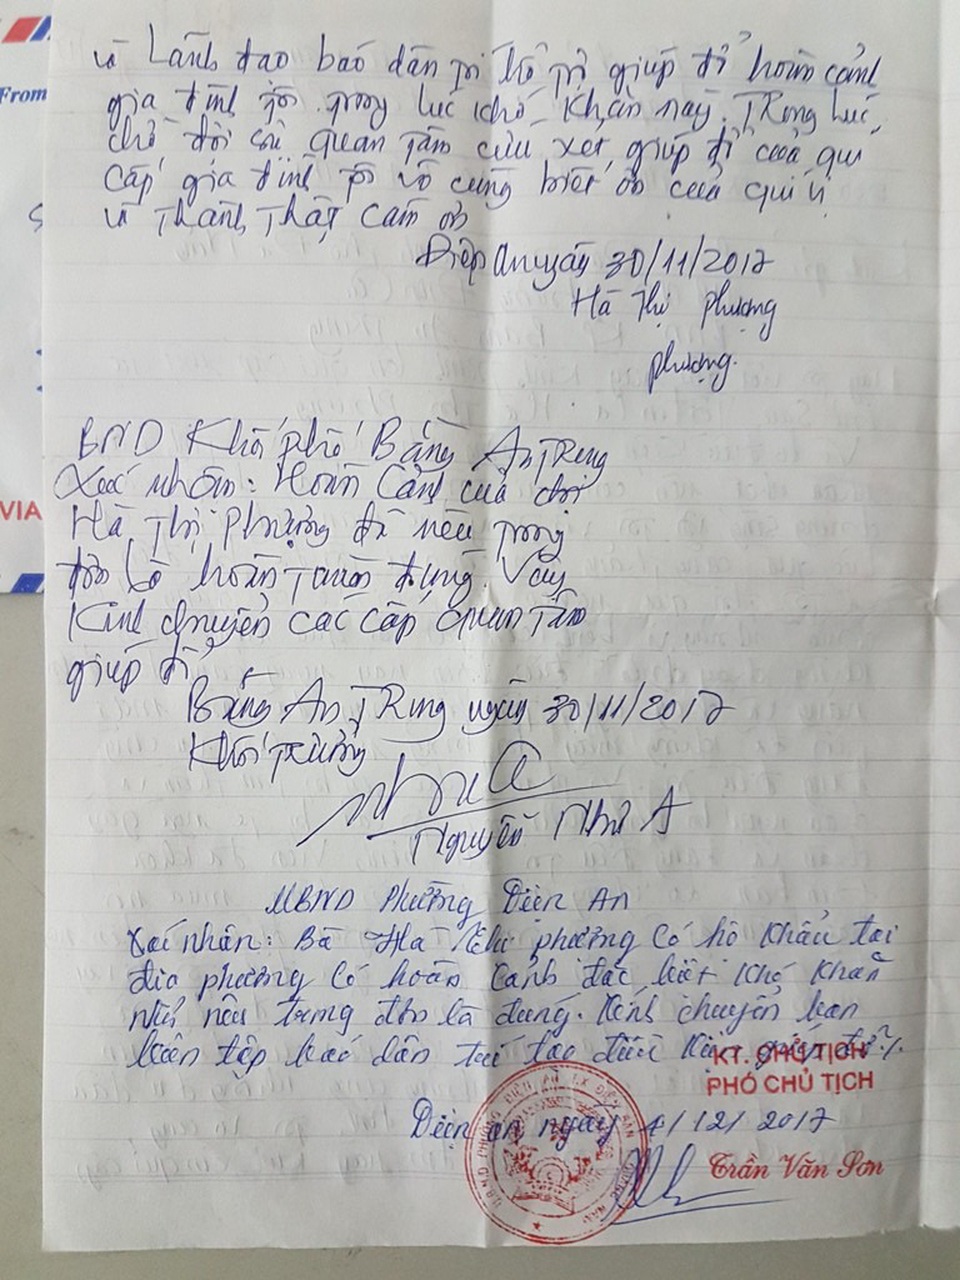 From
VIA
và Lãnh đạo báo dân trí hỗ trợ giúp đỡ hoàn cảnh
gia đình tôi trong lúc khó khăn này. Trong lúc
chờ đợi sự quan tâm cứu xét giúp đỡ của quí
cấp gia đình tôi vô cùng biết ơn của quí vị
và Thành Thật cảm ơn
Điện An ngày 30/11/2017
Hà Thị Phượng
phượng.
BND Khối phố Bằng An Trung
Xác nhận: Hoàn Cảnh của chị
Hà Thị Phượng đã nêu trong
đơn là hoàn toàn đúng. Vậy
Kính chuyển các cấp quan tâm
giúp đỡ
Bằng An Trung ngày 30/11/2017
Khối trưởng
Nguyễn Như A
UBND Phường Điện An
Xác nhận: Bà Hà Thị phượng có hộ khẩu tại
địa phương có hoàn cảnh đặc biệt khó khăn
như nêu trong đơn là đúng. Kính chuyển ban
biên tập báo dân trí tạo điều kiện giúp đỡ./.
KT. CHỦ TỊCH
PHÓ CHỦ TỊCH
Điện an ngày 4/12/2017
Trần Văn Sơn